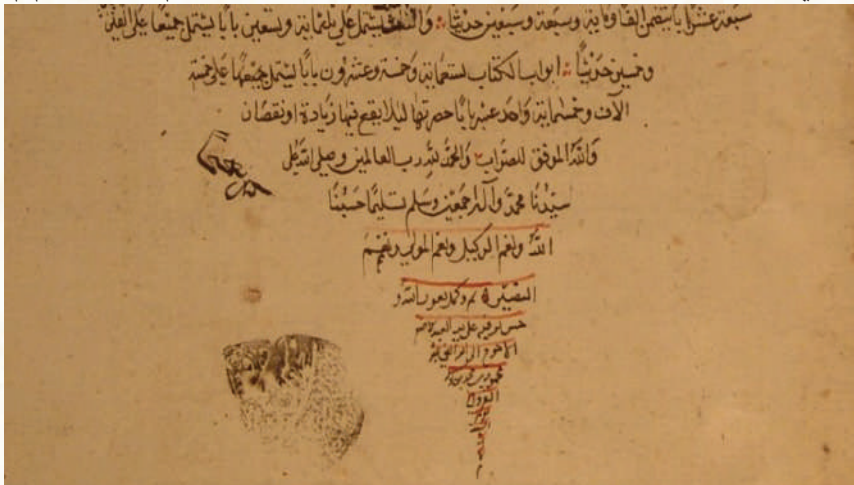 سبعة عشر بابا يتضمن الفا ومائة وسبعة وسبعين حديثا والثالث يشتمل على ثلثمائة وتسعين بابا يشتمل جميعا على الفين
وخمسين حديثا ابواب الكتاب تسعمائة وخمسة وعشرون بابا يشتمل جميعها على خمسة
الاف وخمسمائة واحد عشر بابا حصرتها ليلا يقع فيها زيادة او نقصان
والله الموفق للصواب والحمد لله رب العالمين وصلى الله على
سيدنا محمد وآله اجمعين وسلم تسليما حسبنا
الله ونعم الوكيل ونعم المولى ونعم
النصير تم وكمل بعون الله و
حسن توفيقه على يد العبد